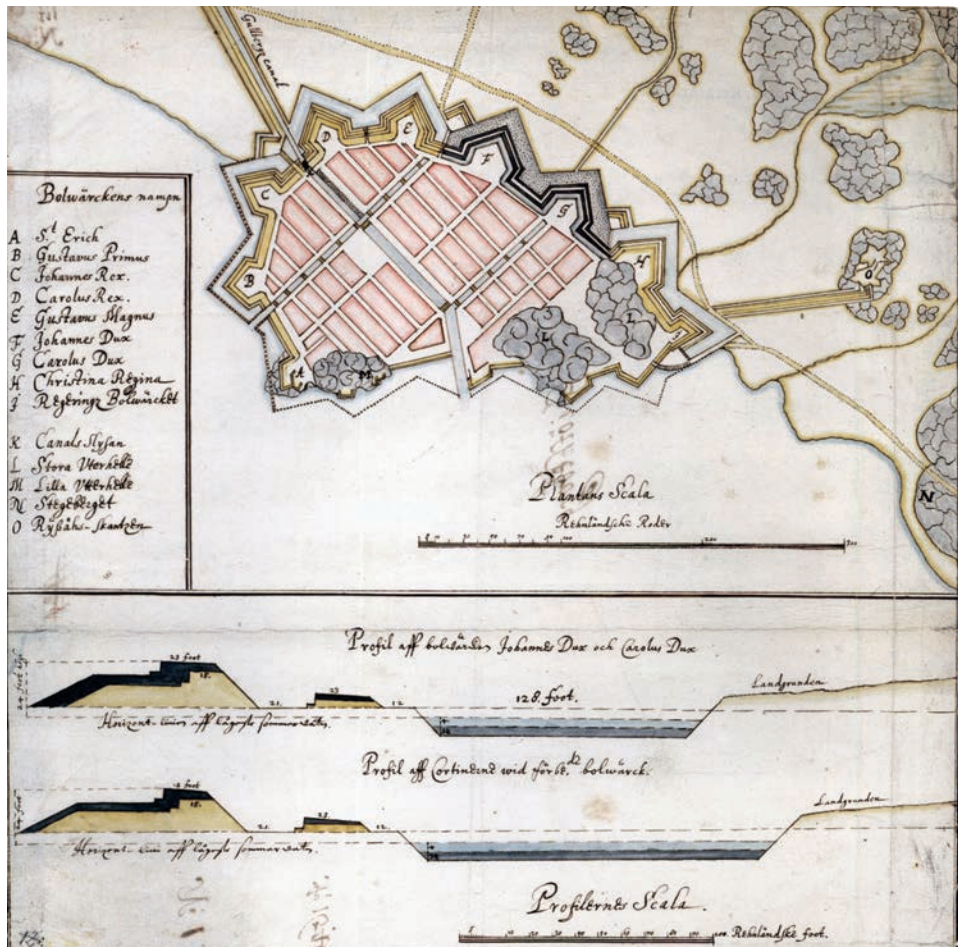 Gulbergz canal
Bolwärckens nampn
A St Erich
B Gustavus Primus
C Johannes Rex.
D Carolus Rex.
E Gustavus Magnus
F Johannes Dux
G Carolus Dux
H Christina Regina
J Regeringz Bolwärcket
K Canals Slysan
L Stora Utterhelle
M Lilla Utterhelle
N Stegeberget
O Rysåhs-skantzen
D
E
F
C
G
B
H
O
L
L
A
M
N
Plantans Scala
Rehnländsche Roder
200
300
Profil aff bolwärcken Johannes Dux och Carolus Dux
23 foot
18.
21.
23
12.
128. foot.
Landgrunden
Horizont-linien aff lägste sommarvatn.
Profil aff Cortinerne wid förbe.de bolwärck.
foot
18.
21.
23.
12.
Landgrunden
Horizont-linien aff lägste sommarvatn.
Profilernes Scala.
100 Rehnländske foot.